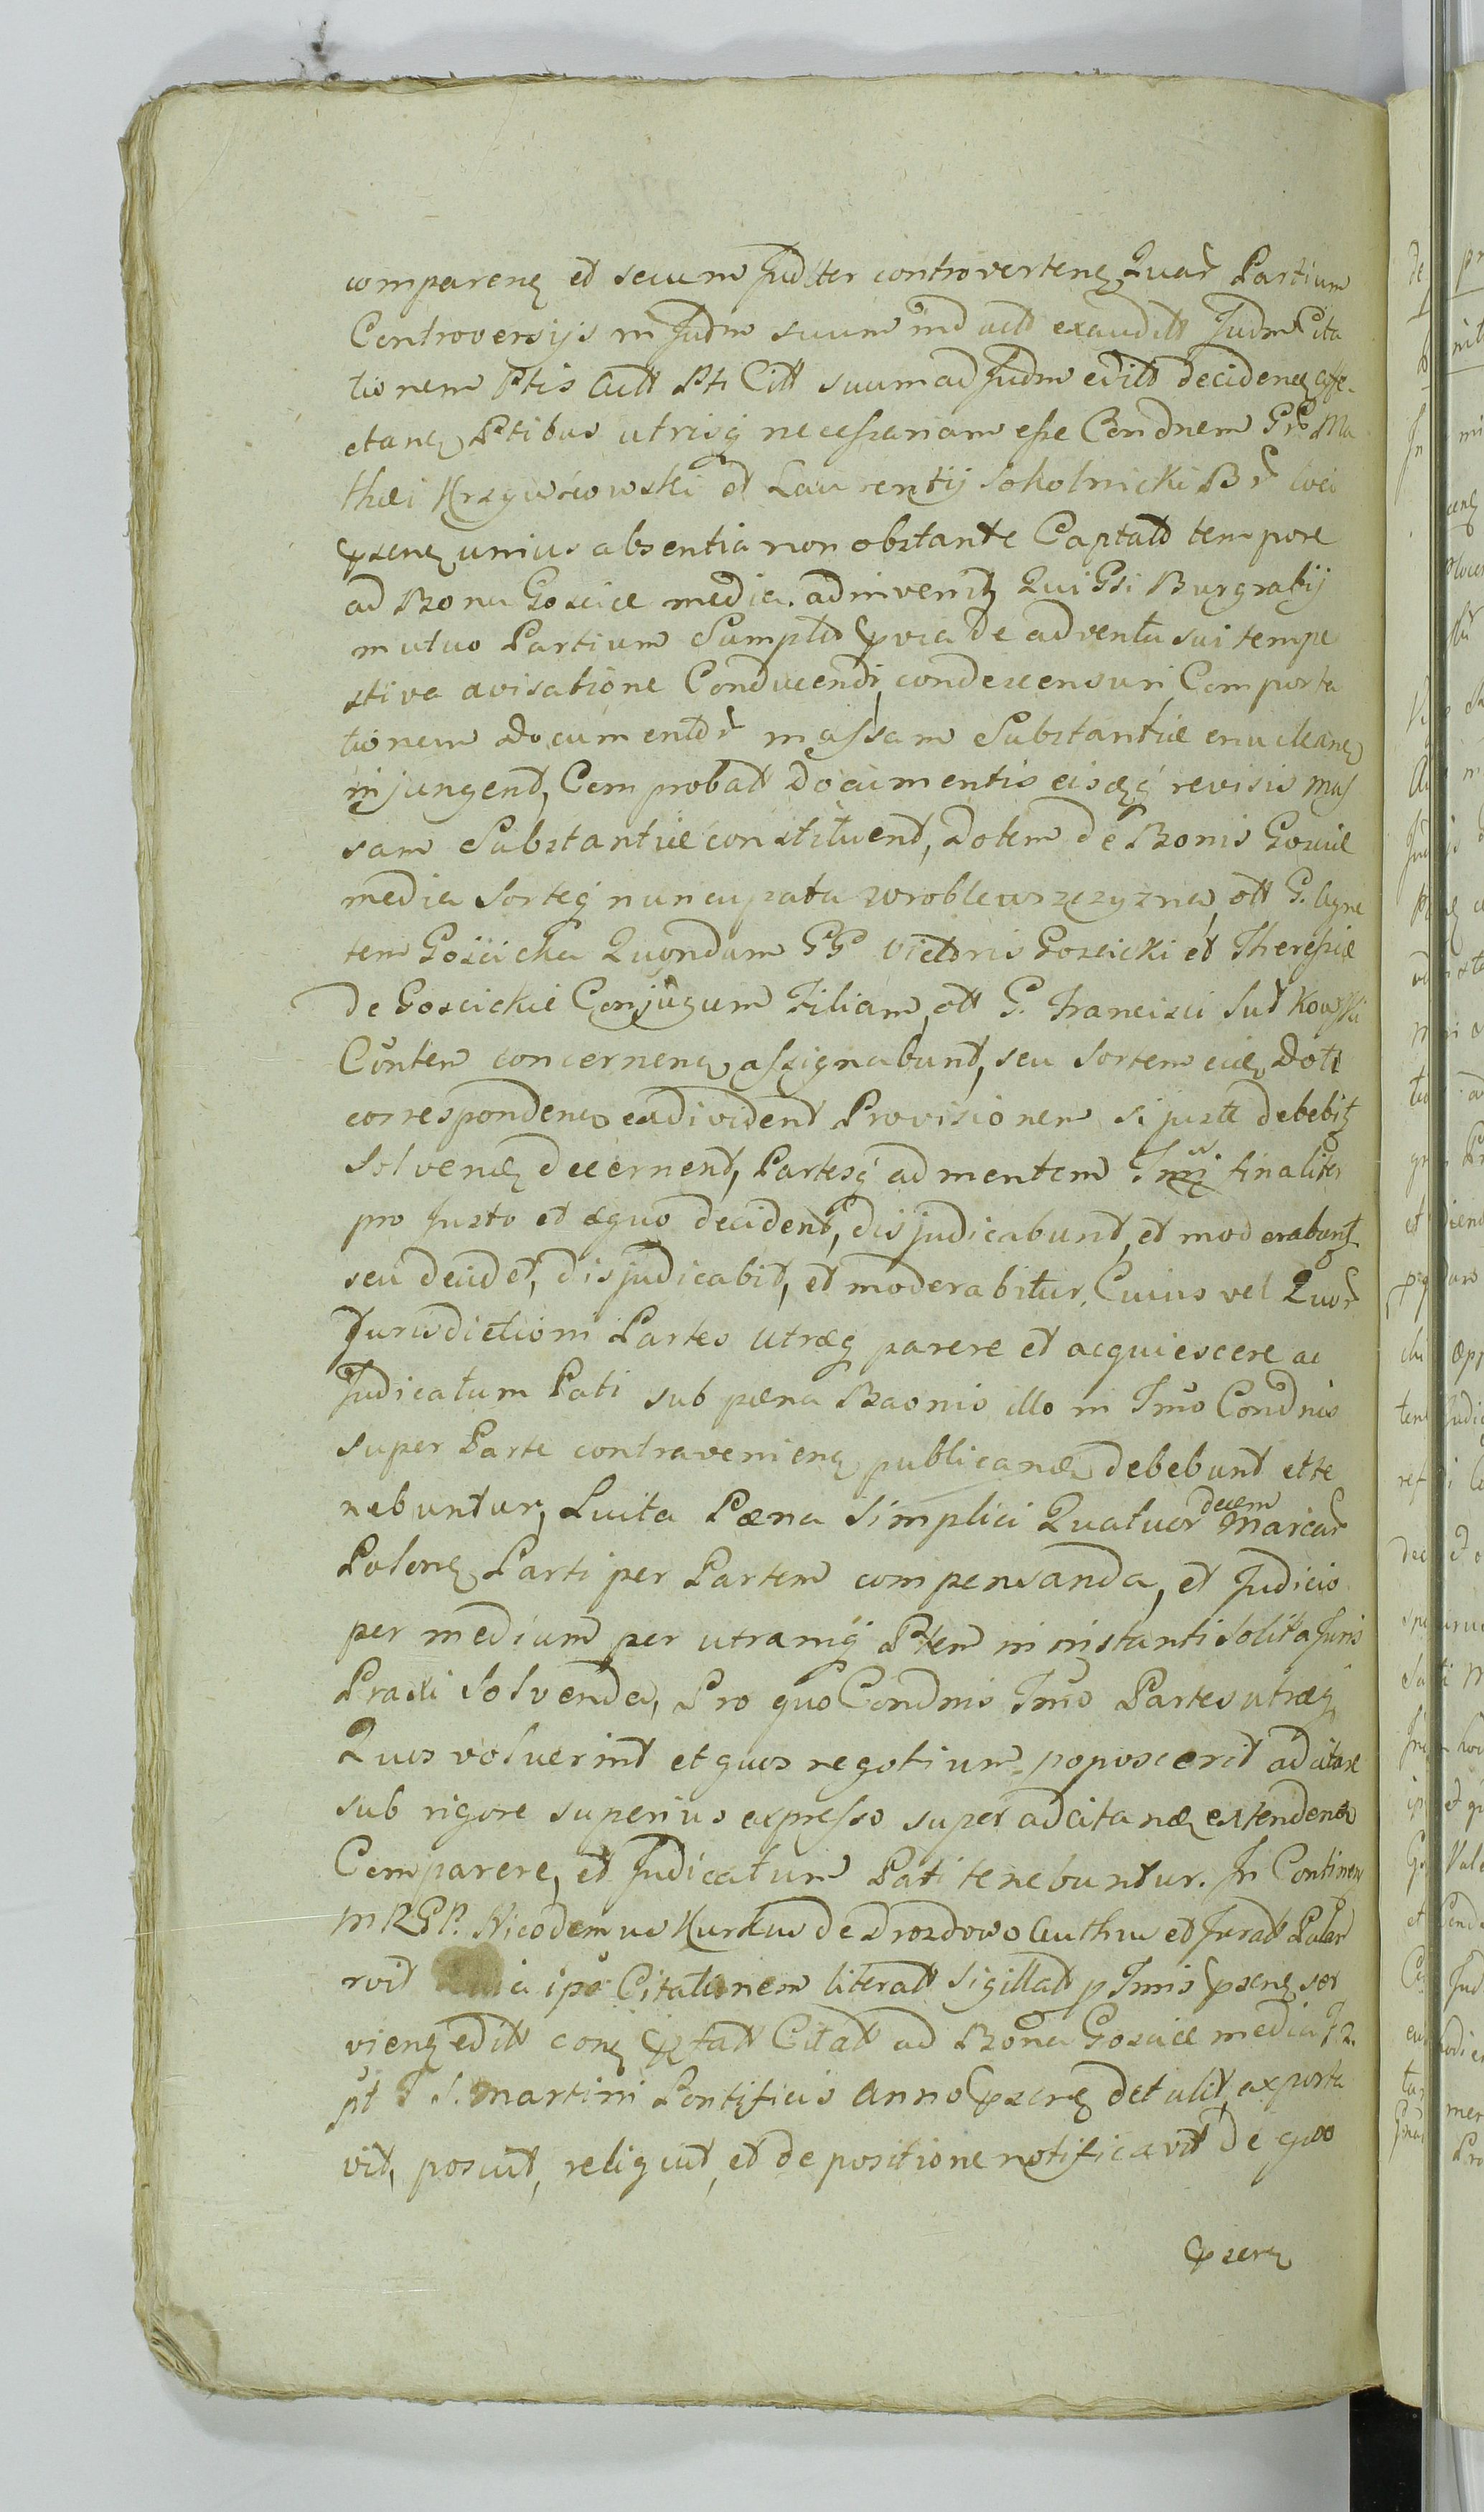 comparen et secum Judlter controverten Quar Partium
Controversijs in Judm suum induct exaudit Judm Cita
tionem Ptis Act Pti Citt suum ad Judm edit deciden affe
ctan Ptibus utrisq necessariam esse Condnem GG Ma
thei Krzywkowski et Laurentij Sokolnicki B loci
psen unius absentia non obstante Captato tempore
ad Bona Goscice media adinvenit Qui Gsi Burgrabij
mutuo Partium Sumptu pvia de adventu sui tempe
stiva avisatione Conducendi, condescensuri Comporta
tionem documentor massam Substantiæ enuclean
injungent, Comprobatt documentis eisq revisis mas
sam Substantiæ constituent, dotem de Bonis Goscice
media Sorteq nuncupata Wroblewszczyzna, ott G. Agne
tem Goscicka Quondam GG Victoris Goscicki et Theresiæ
de Goscickie Conjugum Filiam, ott G. Francisci Sutkowski
Conten concernen assignabunt, seu Sortem eidem Doti
corresponden exdivident Provisionem si juste debebit
Solven decernent, Partesq ad mentem finaliter
pro Justo et æquo decident, disjudicabunt, et moderabunt
seu decidet, disjudicabit, et moderabitur, Cuius vel Quor
Jurisdictioni Partes utræq parere et acquiescere ac
Judicatum Pati sub pæna Baonis illo in Tmo Condnis
super Parte contravenien publican debebunt et te
nebuntur, Luita Pæna Simplici Quatuordecem Marcar
Polon Parti per Partem compensanda, et Judicio
per medium per utramq Ptem in instanti Solita Juris
Praxi Solvenda, Pro quo Condnis Tmo Partes utræq
Quos voluerint et quos negotium poposcerit adcitare
sub rigore superius expresso super adcitan extenden
Comparere, et Judicatum Pati tenebuntur. In Continen
MRGP. Nicodemus Kurkus de Drozdowo Authus et Jurat Palam
rvit ipo Citationem literatt Sigillatt p Tmis psen ser
vien edit con ptatt Citatt ad Bona Goscice media
pt F S. Martini Pontificis Anno psen detulit, exporta
vit, posuit, reliquit, et de positione notificavit de quo
psen